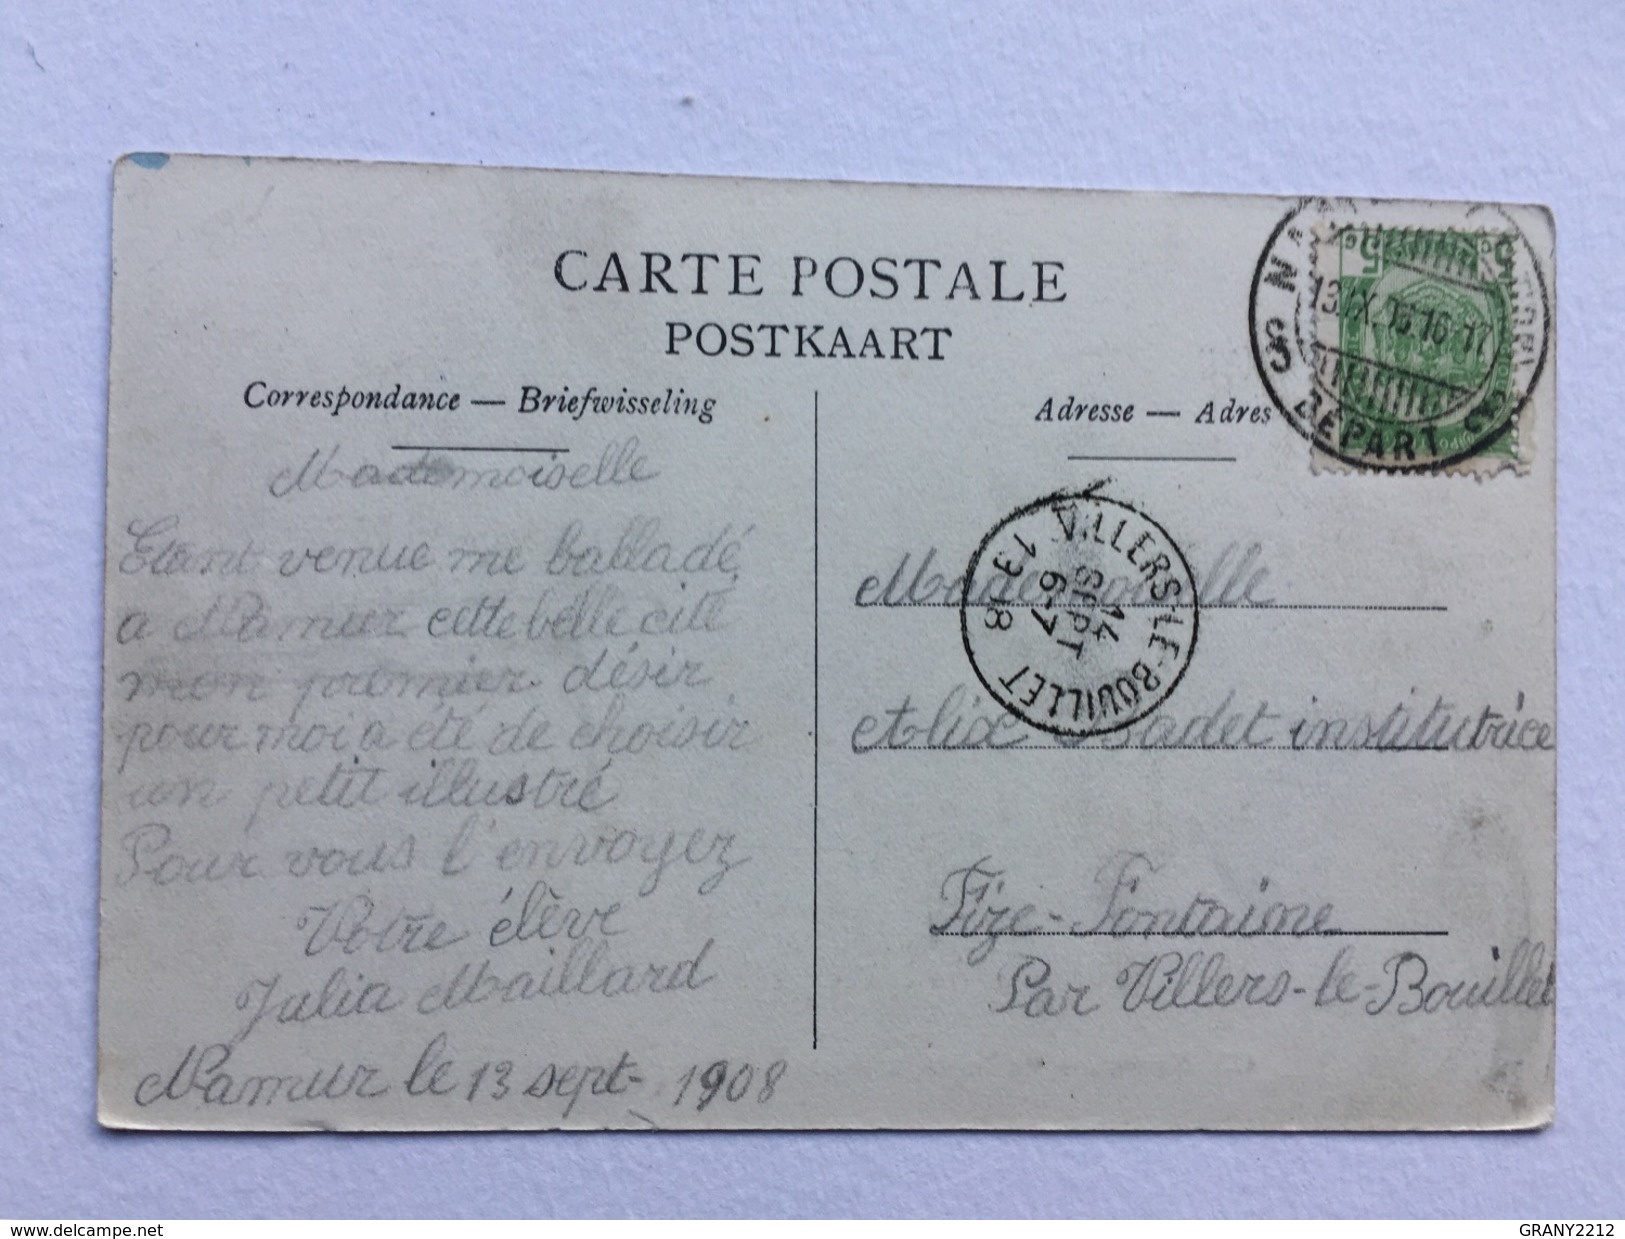 CARTE POSTALE
POSTKAART
Correspondance — Briefwisseling
Adresse — Adres
Mademoiselle
Etant venue me balladé
a Namur cette belle cité
mon premier désir
pour moi a été de choisir
un petit illustré
Pour vous l'envoyez
Votre élève
Julia Maillard
Namur le 13 sept- 1908
Mademoiselle
Alix Badet institutrice
Fize-Fontaine
Par Villers-le-Bouillet
VILLERS-LE-BOUILLET
14
SEPT
6-7
13
8
DEPART
5
5
www.delcampe.net
GRANY2212